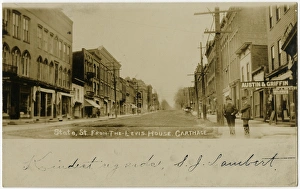 AUSTIN & GRIFFIN
State, St. From-The-Levis-House. Carthage.
Kindest regards, S. J. Lambert